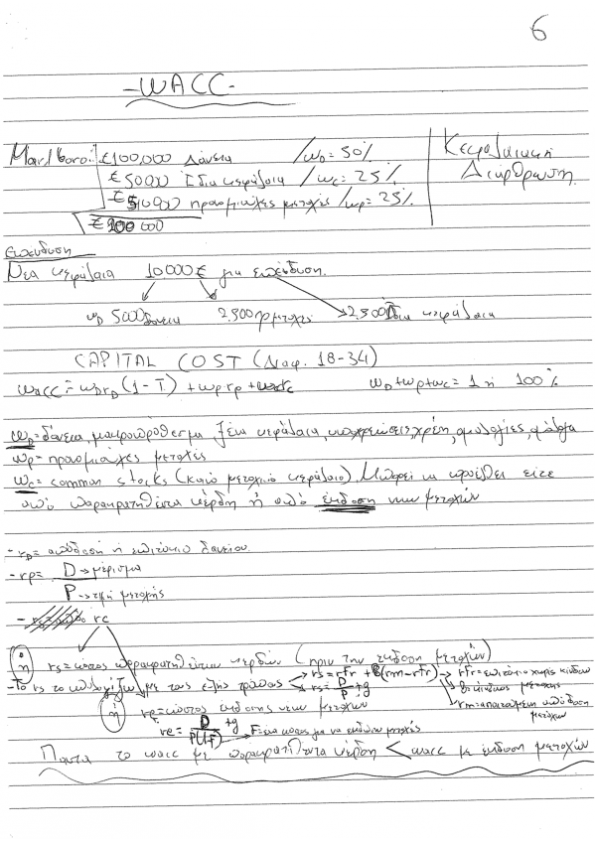 6
-WACC-
Marlboro: €100,000 Δάνεια /wD = 50% Κεφαλαιακή
€ 50000 Ίδια κεφάλαια /wc = 25% Διάρθρωση
€ 50000 προνομιούχες μετοχές /wp = 25%
€200 000
Επένδυση
Νέα κεφάλαια 10000€ για επένδυση.
5000 δάνεια 2,500 πρ μετοχές 2,500 Ίδια κεφάλαια
CAPITAL COST (Διαφ. 18-34)
WACC = wDrD (1-T) + wprp + wcrc wD+wp+wc = 1 ή 100%
wD = δάνεια, μακροπρόθεσμα, ξένα κεφάλαια, υποχρεώσεις, χρέη, ομολογίες,
wp = προνομιούχες μετοχές
wc = common stocks (κοινό μετοχικό κεφάλαιο). Μπορεί να προέλθει είτε
από παρακρατηθέντα κέρδη ή από έκδοση νέων μετοχών
- rD = απόδοση ή επιτόκιο δανείου
- rp = D → μέρισμα
P → τιμή μετοχής
- rc
ή rs = κόστος παρακρατηθέντων κερδών (πριν την έκδοση μετοχών)
- Το rs το υπολογίζω με τους εξής τρόπους rs = rfr + β(rm - rfr) → rfr = επιτόκιο χωρίς κίνδυνο
rs = D/P + g
rm = απαιτούμενη απόδοση μετοχών
ή re = κόστος έκδοσης νέων μετοχών
re = D/P(1-F) + g F = για να εκδώσω μετοχές
Πάντα το WACC με παρακρατηθέντα κέρδη < WACC με έκδοση μετοχών